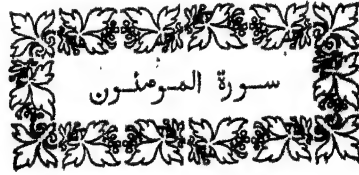 سورة المؤمنون